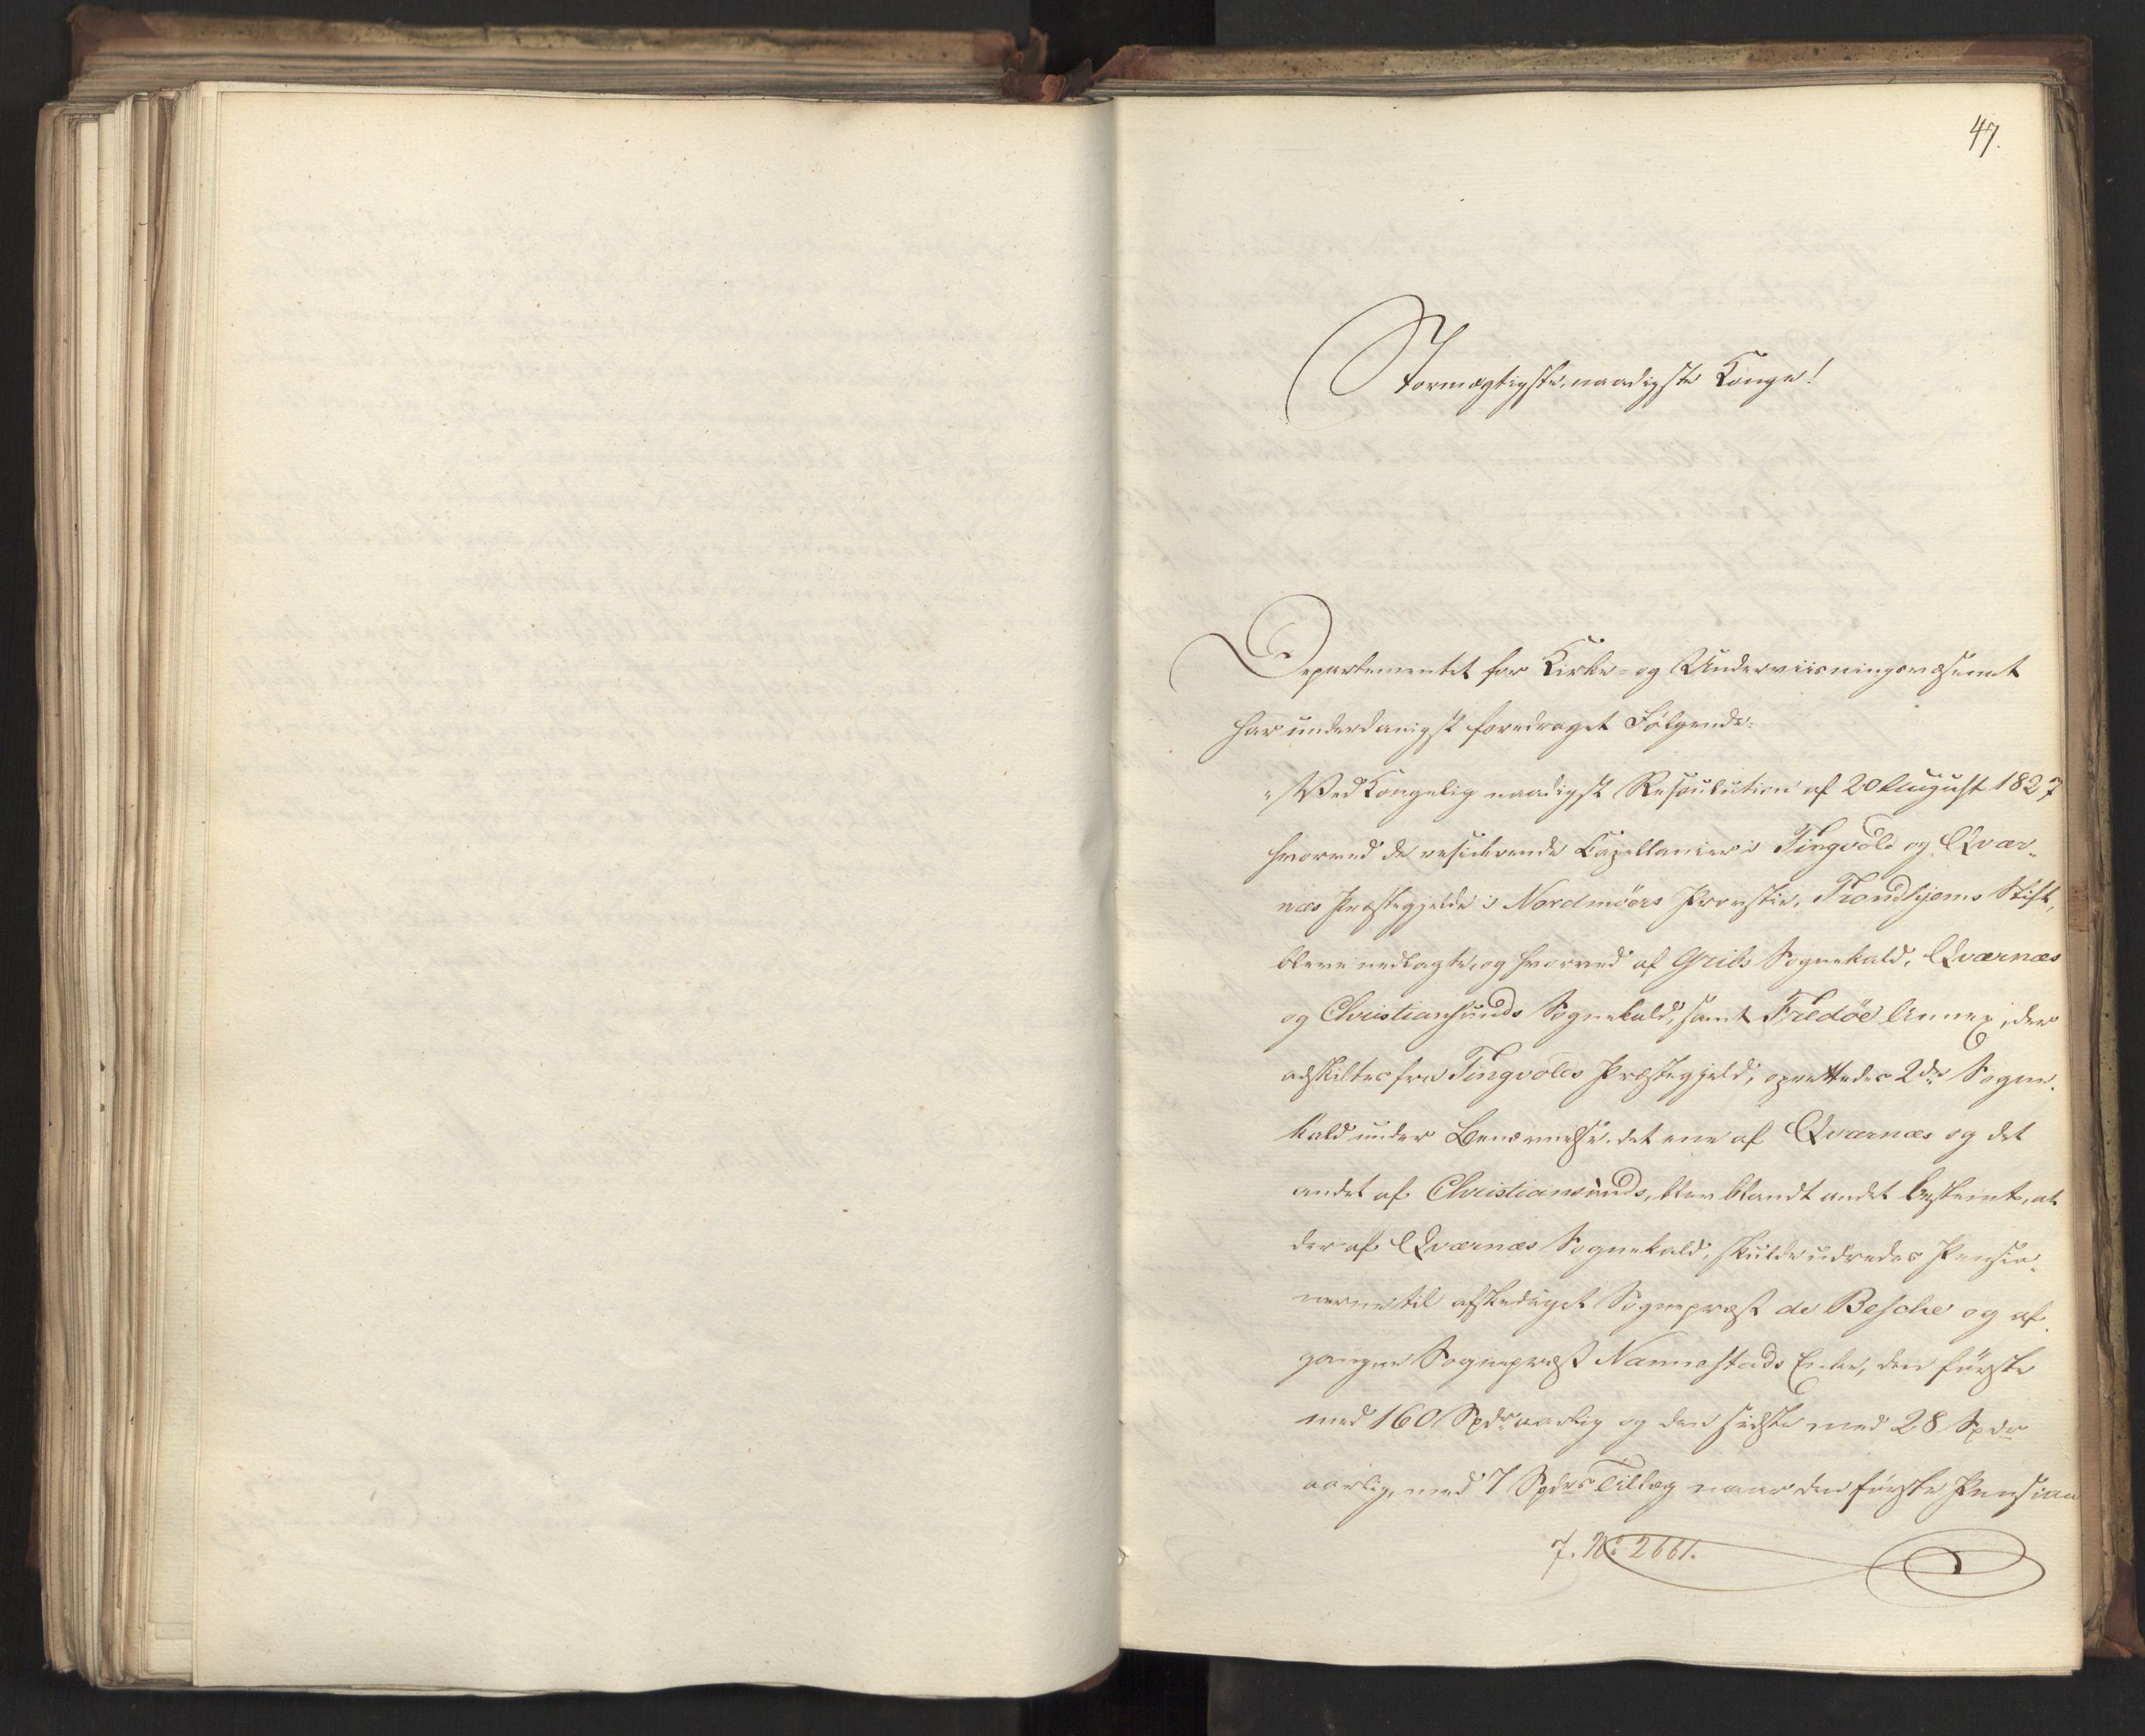 47.
Stormægtigste, naadigste Konge!
Departementet for Kirke- og Underviisningsvæsenet
har underdanigst foredraget Følgende:
"Ved Kongelig naadigst Resoulution af 20 August 1827
hvorved de residerende Capellanier i Tingvold og Qvær„
næs Præstegjelde i Nordmöers Provstie, Trondhjems Stift,
bleve nedlagte, og hvorved af Grib Sognekald, Qværnæs
og Christiansunds Sognekald, samt Fredöe Annex, der
adskiltes fra Tingvolds Præstegjeld, oprettedes 2de Sogne„
kald under Benævnelse, det ene af Qværnæs og det
andet af Christiansunds, blev blandt andet bestemt, at
der af Qværnæs Sognekald, skulde udredes Pensio„
nerne til afskediget Sognepræst de Besche og af„
gangne Sognepræst Nannestads Enke, den første
med 160 Spdr aarlig og den sidste med 28 Spdr
aarlig, med 7 Spdrs Tillæg naar den første Pension
7. No 2661.